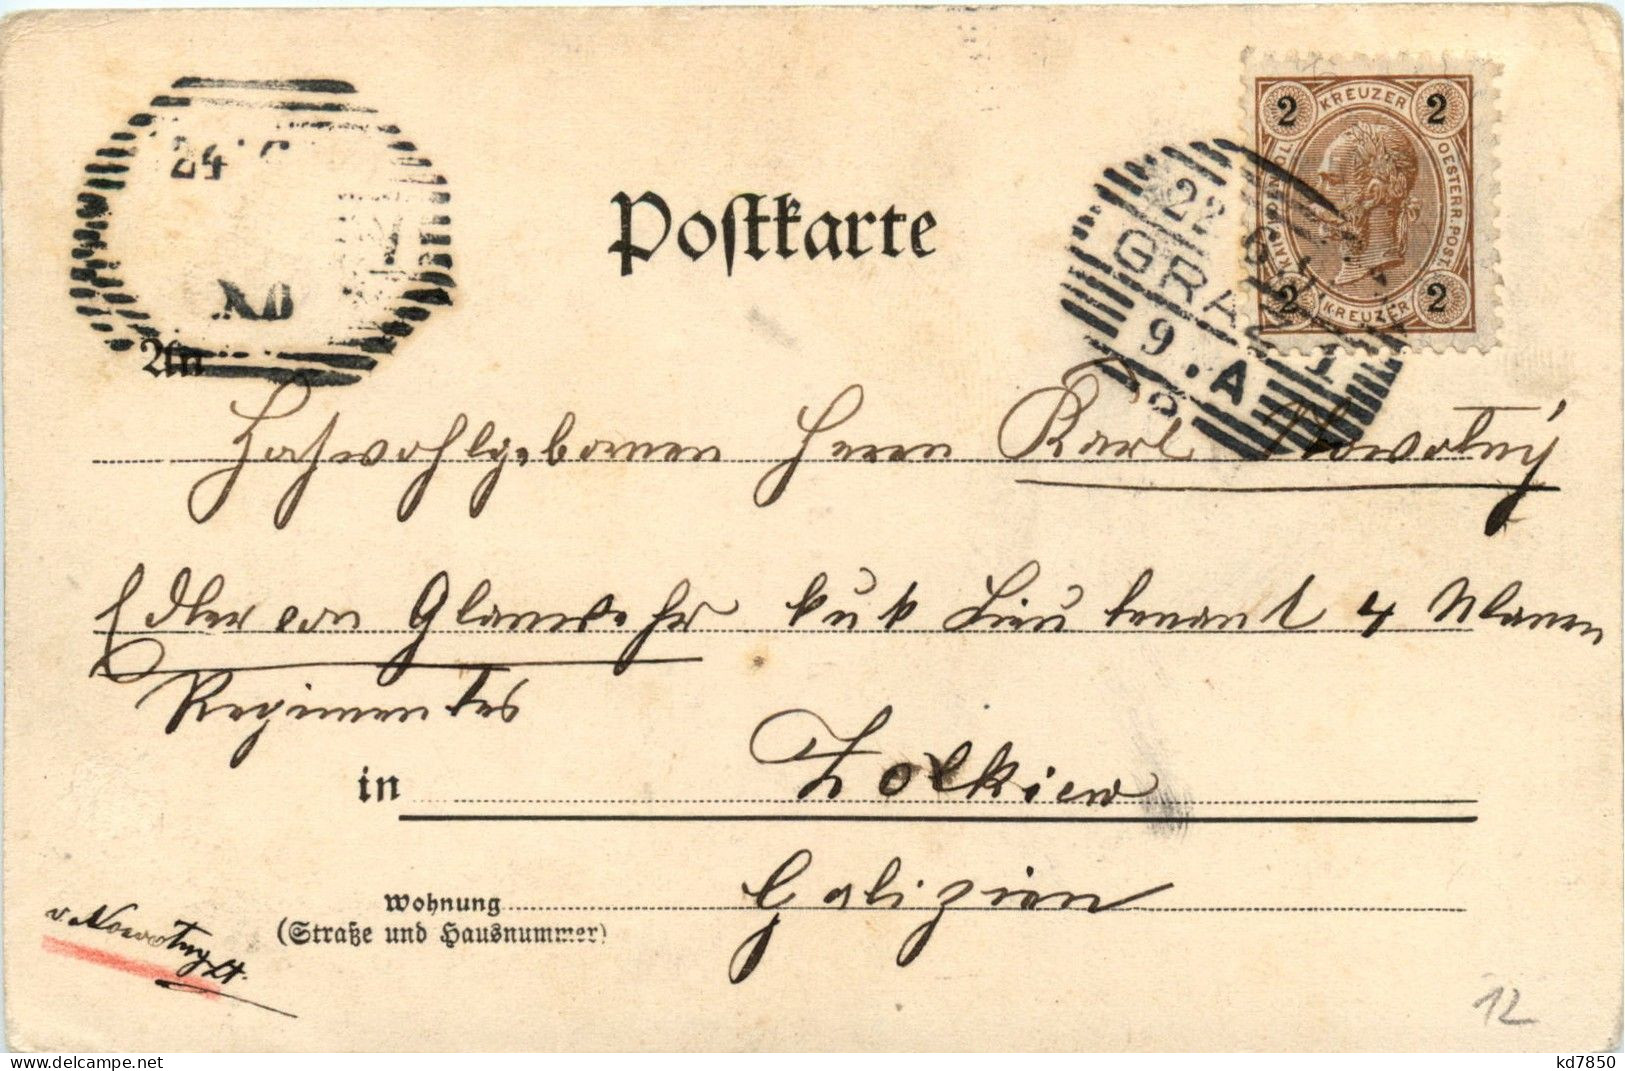 Postkarte
2 KREUZER 2
KAIS. KOENIGL. OESTERR. POST.
2 KREUZER 2
24
22
GRAZ 1
9. A
An
Hochwohlgeboren Herrn Karl Nowotný
Edler von Glanwehr kuk Lieutenant 4 Ulanen
Regimentes
in Zolkiew
Galizien
Wohnung
(Straße und Hausnummer)
v. Nowotny Lt.
12
delcampe.net
kd7850